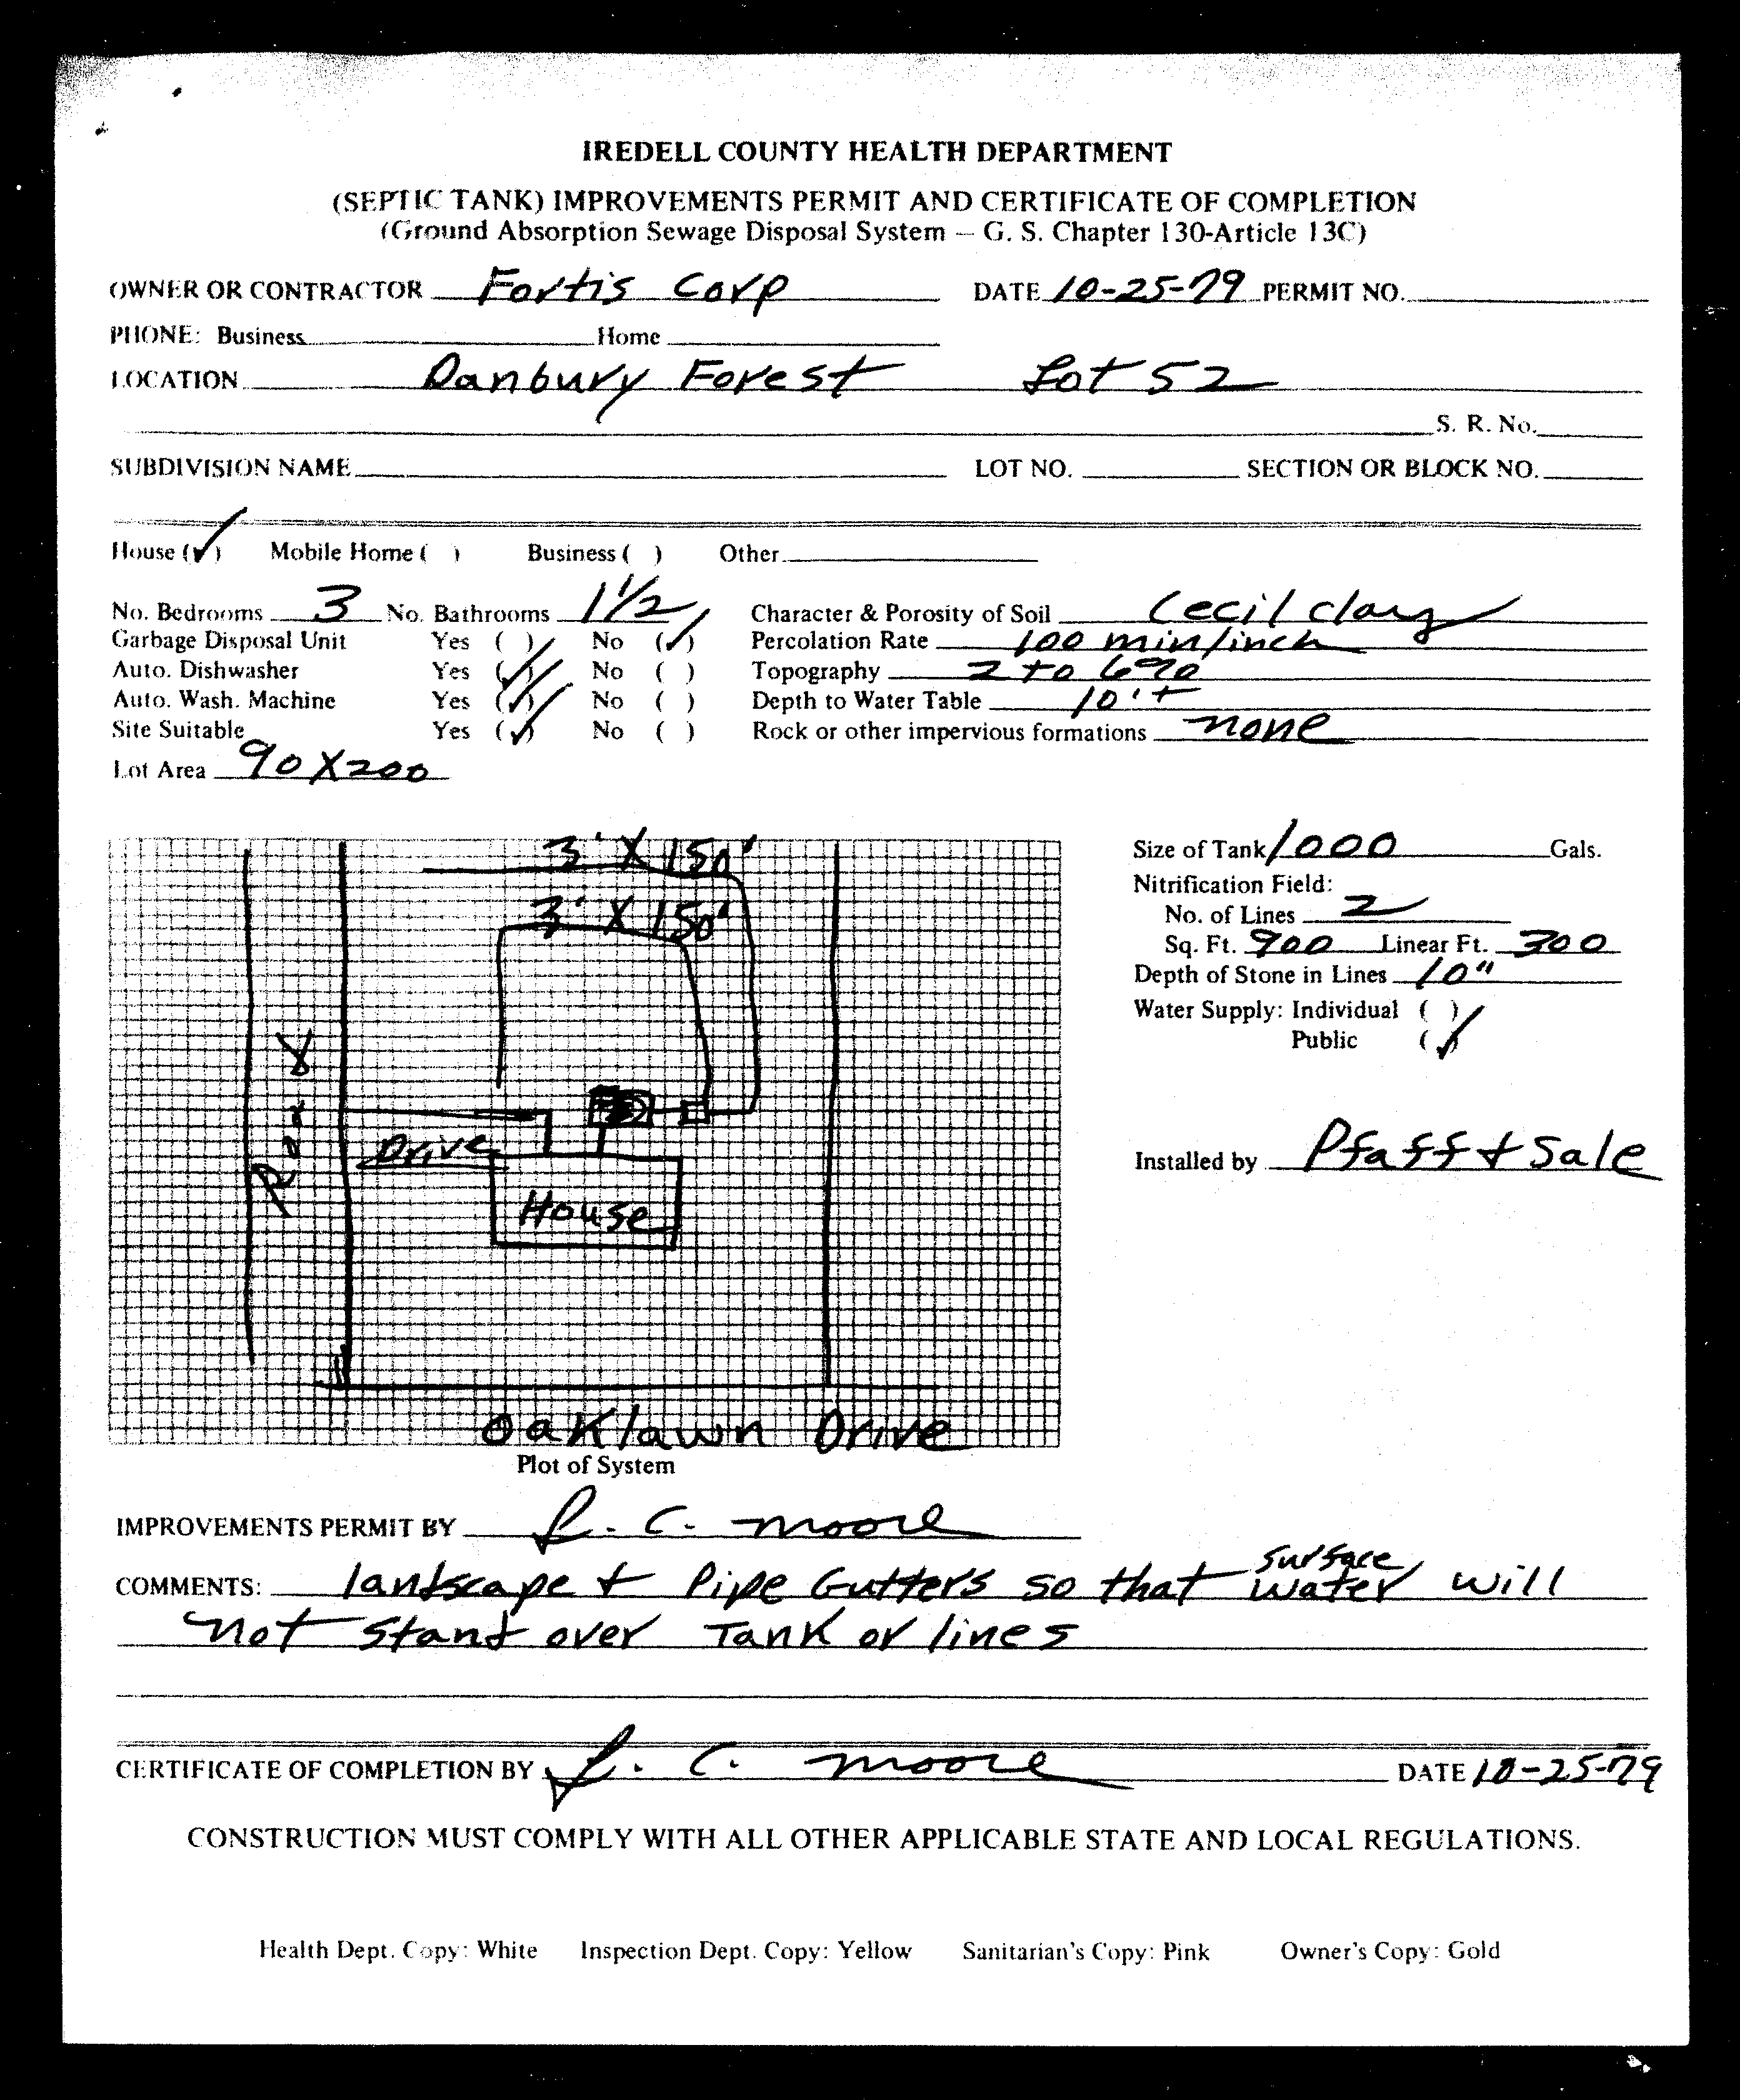 IREDELL COUNTY HEALTH DEPARTMENT
(SEPTIC TANK) IMPROVEMENTS PERMIT AND CERTIFICATE OF COMPLETION
(Ground Absorption Sewage Disposal System — G. S. Chapter 130-Article 13C)
OWNER OR CONTRACTOR Fortis Corp DATE 10-25-79 PERMIT NO.
PHONE: Business Home
LOCATION Danbury Forest Lot 52
S. R. No.
SUBDIVISION NAME LOT NO. SECTION OR BLOCK NO.
House (✓) Mobile Home ( ) Business ( ) Other
No. Bedrooms 3 No. Bathrooms 1 1/2 Character & Porosity of Soil Cecil clay
Garbage Disposal Unit Yes ( ) No (✓) Percolation Rate 100 min/inch
Auto. Dishwasher Yes (✓) No ( ) Topography 2 to 6%
Auto. Wash. Machine Yes (✓) No ( ) Depth to Water Table 10'+
Site Suitable Yes (✓) No ( ) Rock or other impervious formations none
Lot Area 90 X 200
3' X 150'
3' X 150'
Road
Drive
House
Oaklawn Drive
Plot of System
Size of Tank 1000 Gals.
Nitrification Field:
No. of Lines 2
Sq. Ft. 900 Linear Ft. 300
Depth of Stone in Lines 10"
Water Supply: Individual ( )
Public (✓)
Installed by Pfaff + Sale
IMPROVEMENTS PERMIT BY L. C. Moore
COMMENTS: landscape + Pipe Gutters so that surface water will
not stand over Tank or lines
CERTIFICATE OF COMPLETION BY L. C. Moore DATE 10-25-79
CONSTRUCTION MUST COMPLY WITH ALL OTHER APPLICABLE STATE AND LOCAL REGULATIONS.
Health Dept. Copy: White Inspection Dept. Copy: Yellow Sanitarian's Copy: Pink Owner's Copy: Gold